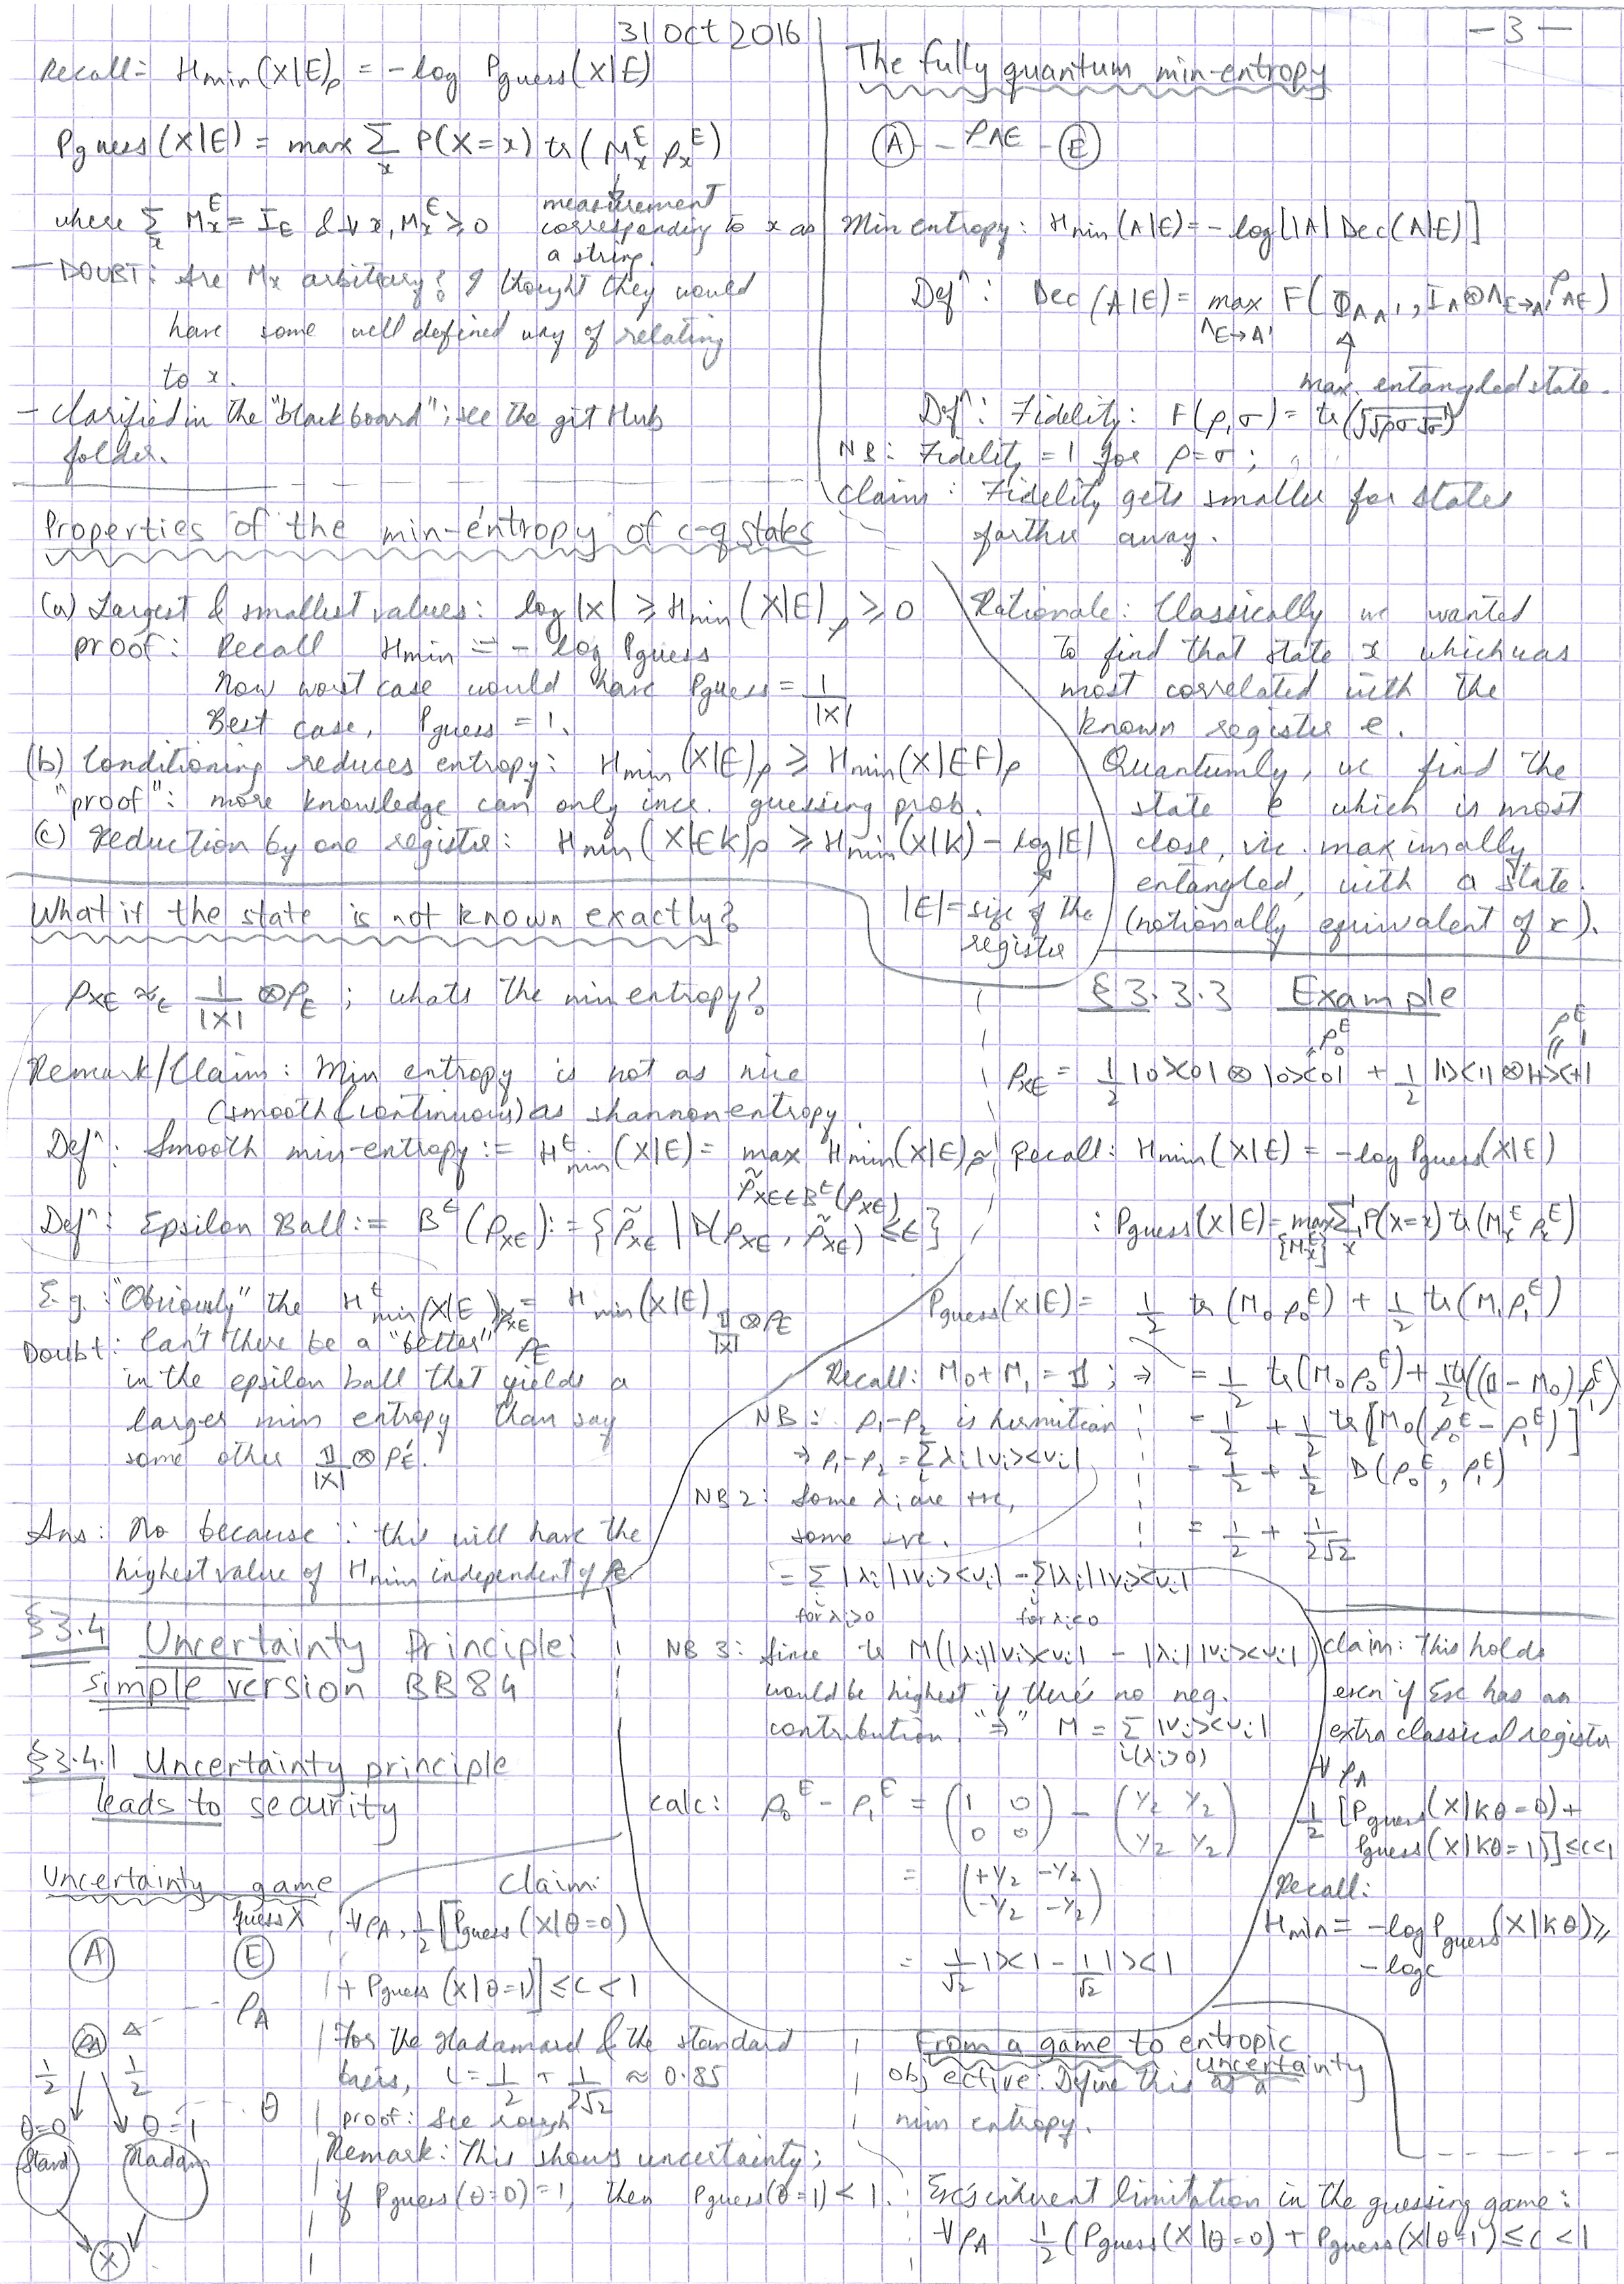 31 Oct 2016
- 3 -
Recall: Hmin(X|E)ρ = -log Pguess(X|E)
Pguess(X|E) = max Σx P(X=x) tr(MxE ρxE)
where Σx MxE = IE & ∀x, MxE ≥ 0
measurement
corresponding to x as
a string.
- DOUBT: Are Mx arbitrary? I thought they would
have some well defined way of relating
to x.
- Clarified in the "blackboard"; see the git Hub
folder.
Properties of the min-entropy of c-q states
(a) Largest & smallest values: log|X| ≥ Hmin(X|E)ρ ≥ 0
proof: Recall Hmin = -log Pguess
Now worst case would have Pguess = 1/|X|
Best case, Pguess = 1.
(b) Conditioning reduces entropy: Hmin(X|E)ρ ≥ Hmin(X|EF)ρ
"proof": more knowledge can only inc. guessing prob.
(c) Reduction by one register: Hmin(X|EK)ρ ≥ Hmin(X|K) - log|E|
|E| = size of the
register
What if the state is not known exactly?
ρXE ≈ε 1/|X| ⊗ρE ; whats the min entropy?
Remark/Claim: Min entropy is not as nice
(smooth (continuous) as shannon entropy
Defn: Smooth min-entropy := Hεmin(X|E) = max Hmin(X|E)ρ̃
ρ̃XE∈Bε(ρXE)
Defn: Epsilon Ball := Bε(ρXE) := {ρ̃XE | D(ρXE, ρ̃XE) ≤ε}
E.g. "Obviously" the Hεmin(X|E)ρXE = Hmin(X|E)𝟙/|X| ⊗ρE
Doubt: Can't there be a "better" ρE
in the epsilon ball that yields a
larger min entropy than say
some other 𝟙/|X| ⊗ρE'.
Ans: No because ∵ this will have the
highest value of Hmin independent of ρE
§3.4 Uncertainty Principle:
simple version BB84
§3.4.1 Uncertainty principle
leads to security
Uncertainty game
guess X
A E
ρA
ρA
1/2 1/2
θ=0 θ=1
θ
Stand Hadam
X
Claim:
∀ρA, 1/2 [Pguess(X|θ=0)
+ Pguess(X|θ=1)] ≤ c < 1
For the Hadamard & the standard
basis, c = 1/2 + 1/2√2 ≈ 0.85
proof: See rough
Remark: This shows uncertainty;
if Pguess(θ=0)=1, then Pguess(θ=1) < 1.
The fully quantum min-entropy
A - ρAE - E
Min entropy: Hmin(A|E) = -log[|A| Dec(A|E)]
Defn: Dec(A|E) = max F(ΦAA', IA⊗ΛE→A' ρAE)
ΛE→A'
max. entangled state.
Defn: Fidelity: F(ρ,σ) = tr(√√ρσ√ρ)
NB: Fidelity = 1 for ρ=σ;
Claim: Fidelity gets smaller for states
farther away.
Rationale: Classically we wanted
to find that state x which was
most correlated with the
known register e.
Quantumly, we find the
state e which is most
close, viz. maximally
entangled, with a state.
(notionally equivalent of x).
§ 3.3.3 Example
ρ0E ρ1E
ρXE = 1/2 |0><0| ⊗ |0><0| + 1/2 |1><1| ⊗ |+><+|
Recall: Hmin(X|E) = -log Pguess(X|E)
: Pguess(X|E) = max{MxE} Σx P(X=x) tr(MxE ρxE)
Pguess(X|E) = 1/2 tr(M0 ρ0E) + 1/2 tr(M1 ρ1E)
Recall: M0+M1 = 𝟙 ; ⇒ = 1/2 tr(M0ρ0E) + 1/2 tr((𝟙-M0)ρ1E)
= 1/2 + 1/2 tr[M0(ρ0E - ρ1E)]
= 1/2 + 1/2 D(ρ0E, ρ1E)
= 1/2 + 1/2√2
NB: ρ1-ρ2 is hermitian
⇒ ρ1-ρ2 = Σ λi|vi><vi|
NB 2: Some λi are +ve,
some -ve.
= Σ |λi| |vi><vi| - Σ|λi| |vi><vi|
for λi>0 for λi<0
NB 3: Since tr M(|λi||vi><vi| - |λi||vi><vi|)
would be highest if there's no neg.
contribution "⇒" M = Σ |vi><vi|
i(λi>0)
calc: ρ0E - ρ1E = (1 0 0 0) - (1/2 1/2 1/2 1/2)
= (+1/2 -1/2 -1/2 -1/2)
= 1/√2 |><| - 1/√2 |><|
Claim: This holds
even if Eve has an
extra classical register
∀ρA
1/2 [Pguess(X|Kθ=0) +
Pguess(X|Kθ=1)] ≤c<1
Recall:
Hmin = -log Pguess(X|Kθ) ≥
-logc
From a game to entropic
uncertainty
Objective: Define this as a
min entropy.
Eve's inherent limitation in the guessing game:
∀ρA 1/2 (Pguess(X|θ=0) + Pguess(X|θ=1) ≤ c < 1